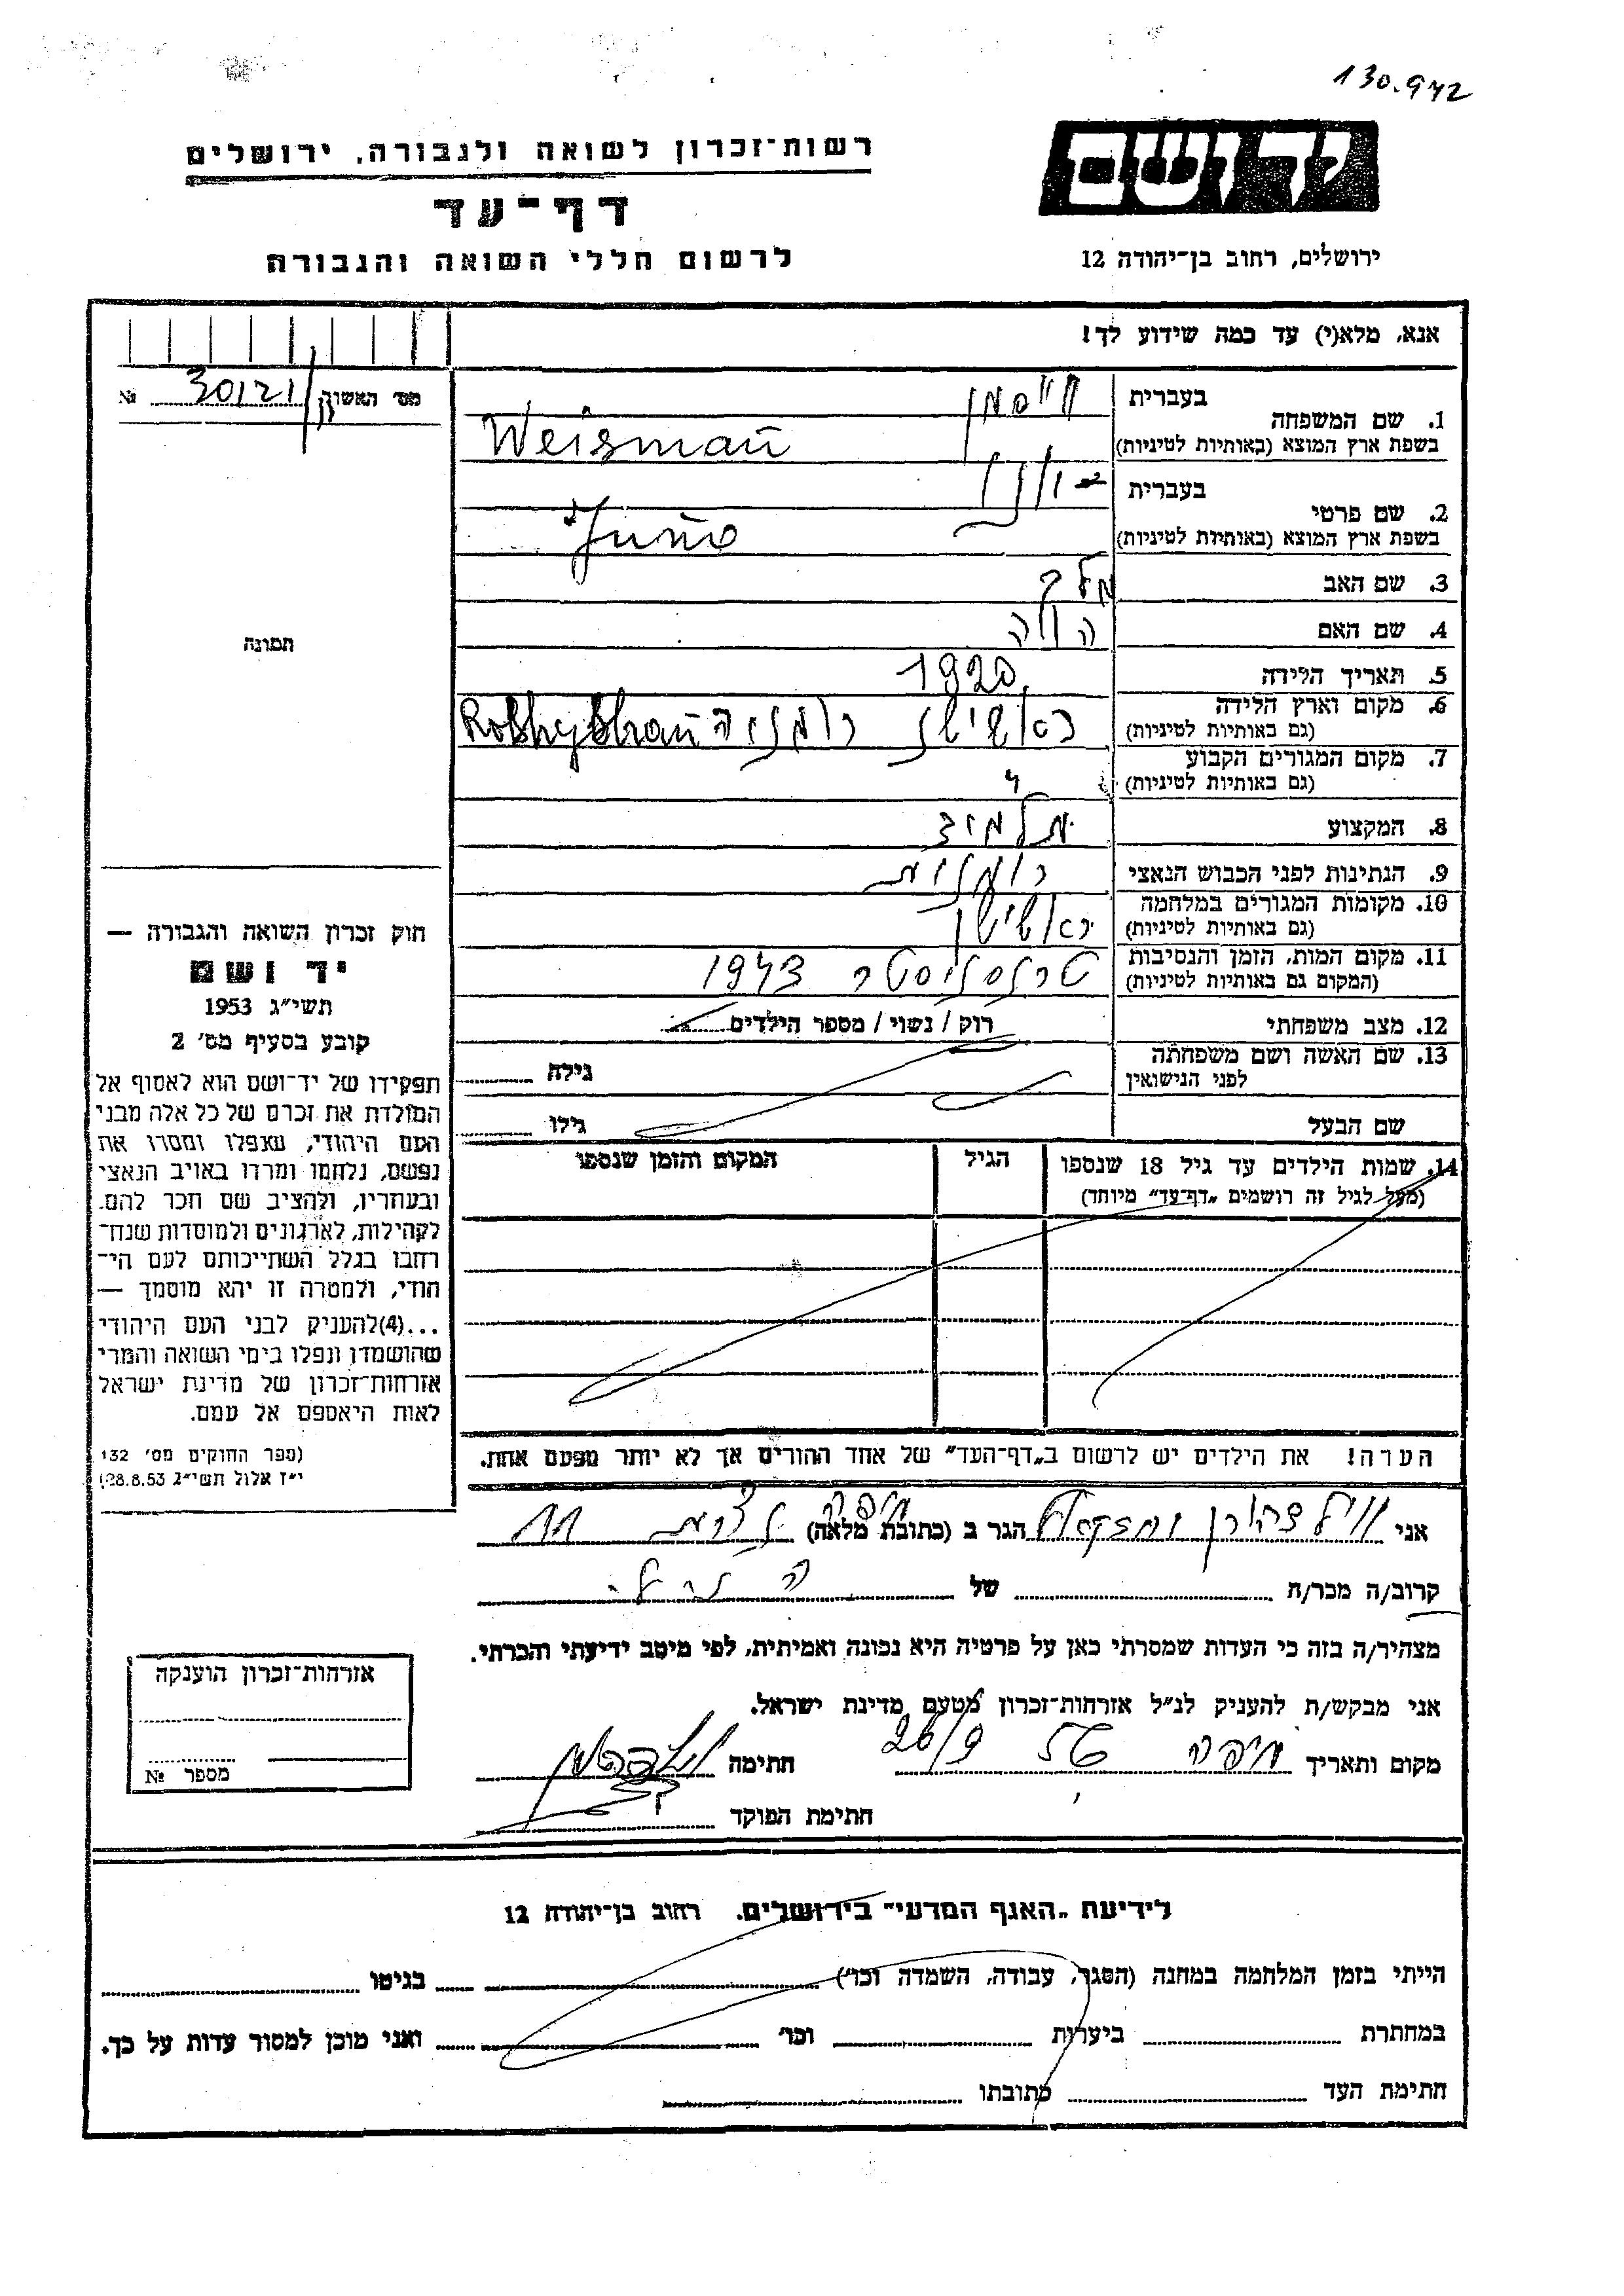 130.942
רשות־זכרון לשואה ולגבורה, ירושלים
יד ושם
דף־עד
לרשום חללי השואה והגבורה
ירושלים, רחוב בן־יהודה 12
אנא, מלא(י) עד כמה שידוע לך!
מס' האשוה 30121 №
תמונה
בעברית
1. שם המשפחה
בשפת ארץ המוצא (באותיות לטיניות)
וייסמן
Weisman
בעברית
2. שם פרטי
בשפת ארץ המוצא (באותיות לטיניות)
3. שם האב
4. שם האם חוה
5. תאריך הלידה 1920
6. מקום וארץ הלידה
(גם באותיות לטיניות)
רומניה
7. מקום המגורים הקבוע
(גם באותיות לטיניות)
"
8. המקצוע תלמיד
9. הנתינות לפני הכבוש הנאצי רומנית
10. מקומות המגורים במלחמה
(גם באותיות לטיניות)
11. מקום המות, הזמן והנסיבות
(המקום גם באותיות לטיניות)
טרנסניסטר 1943
12. מצב משפחתי רוק / נשוי / מספר הילדים
13. שם האשה ושם משפחתה
לפני הנישואין
גילה
שם הבעל גילו
14. שמות הילדים עד גיל 18 שנספו
(מעל לגיל זה רושמים „דף־עד" מיוחד)
הגיל
המקום והזמן שנספו
הערה! את הילדים יש לרשום ב„דף־העד" של אחד ההורים אך לא יותר מפעם אחת.
חוק זכרון השואה והגבורה —
יד ושם
תשי"ג 1953
קובע בסעיף מס' 2
תפקידו של יד־ושם הוא לאסוף אל
המולדת את זכרם של כל אלה מבני
העם היהודי, שנפלו ומסרו את
נפשם, נלחמו ומרדו באויב הנאצי
ובעוזריו, ולהציב שם וזכר להם,
לקהילות, לארגונים ולמוסדות שנח־
רבו בגלל השתייכותם לעם הי־
הודי, ולמטרה זו יהא מוסמך —
...(4)להעניק לבני העם היהודי
שהושמדו ונפלו בימי השואה והמרי
אזרחות־זכרון של מדינת ישראל
לאות היאספם אל עמם.
(ספר החוקים מס' 132
י"ז אלול תשי"ג 28.8.53)
אני הגר ב (כתובת מלאה) חיפה 11
קרוב/ה מכר/ה של
מצהיר/ה בזה כי העדות שמסרתי כאן על פרטיה היא נכונה ואמיתית, לפי מיטב ידיעתי והכרתי.
אני מבקש/ת להעניק לנ"ל אזרחות־זכרון מטעם מדינת ישראל.
מקום ותאריך חיפה 26/9 56 חתימה
חתימת הפוקד
אזרחות־זכרון הוענקה
מספר №
לידיעת „האגף המדעי" בירושלים. רחוב בן־יהודה 12
הייתי בזמן המלחמה במחנה (הסגר, עבודה, השמדה וכו') בגיטו
במחתרת ביערות וכו' ואני מוכן למסור עדות על כך.
חתימת העד כתובתו